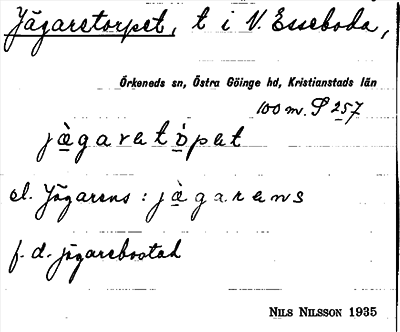 Jägaretorpet, t i V. Esseboda,
Örkeneds sn, Östra Göinge hd, Kristianstads län
100 m. S 257
jæ̀garetòpet
el. Jägarens: jæ̀garens
f. d. jägarebostad
NILS NILSSON 1935